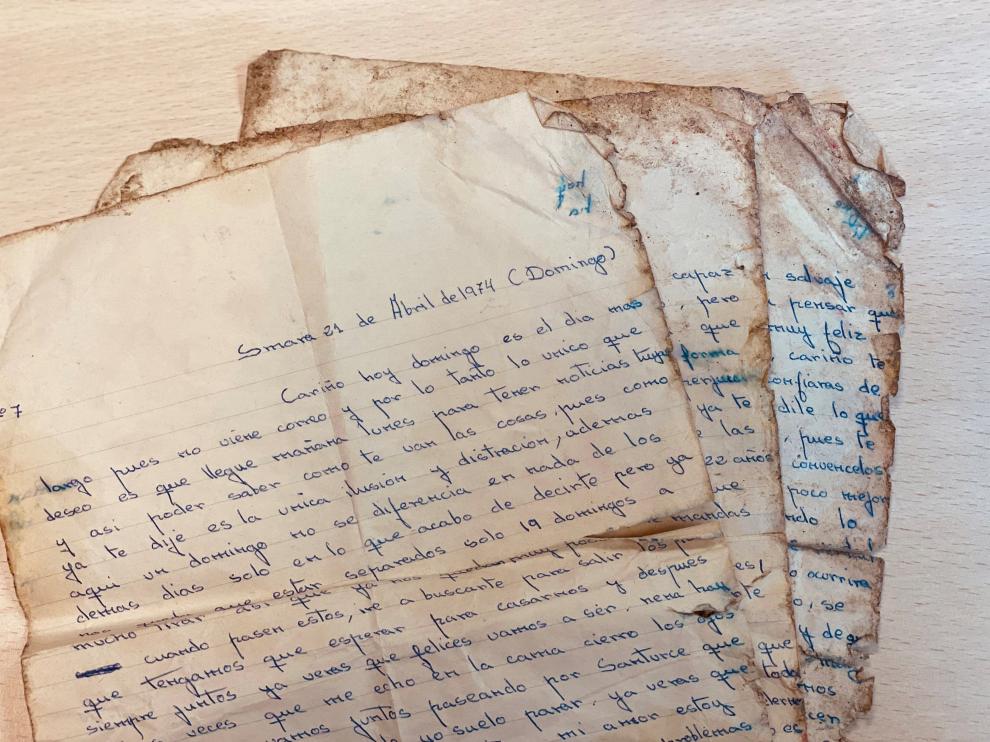 Smara 21 de Abril de 1974 (Domingo)
Cariño hoy domingo es el dia mas
largo pues no viene correo y por lo tanto lo unico que
deseo es que llegue mañana lunes para tener noticias tuyas
y asi poder saber como te van las cosas, pues como
ya te dije es la unica ilusión y distración, ademas
aqui un domingo no se diferencia en nada de los
demas dias solo en lo que acabo de decirte pero ya
mucho mas que asi estar separados solo 19 domingos a
cuando pasen estos, ire a buscarte para salir los
que tengamos que esperar para casarnos y despues
siempre juntos ya veras que felices vamos a sér, nena hay
veces que me echo en la cama cierro los ojos
juntos paseando por Santurce que
yo suelo parar. ya veras que
mi amor estoy
problemas
capaz
, pero
que
forma
ya te
las
22 años
que
mandas
es
que
salvaje
pensar que
muy feliz
cariño te
confiaras de
dile lo que
, pues te
convencelos
poco mejor
lo
ocurrira
o, se
y de